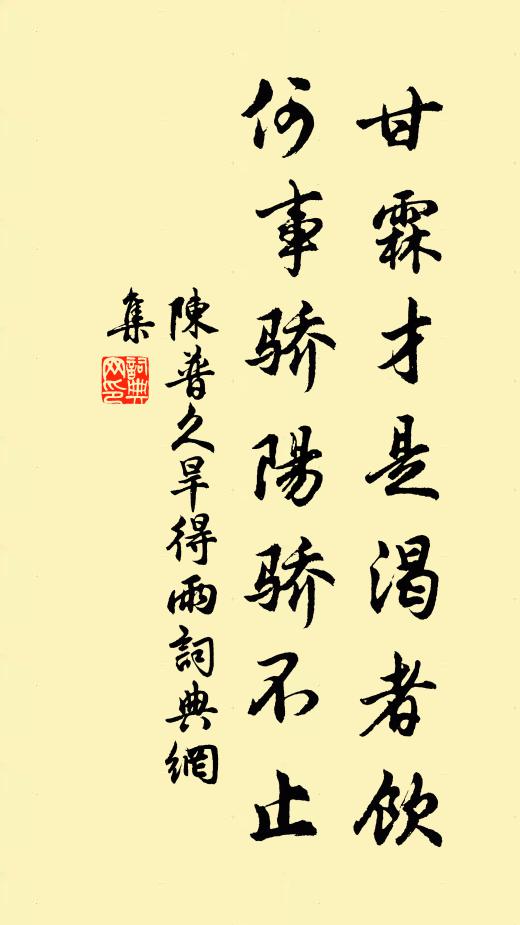 甘霖才是渴者飲
何事骄陽骄不止
陳普久旱得雨詞典網
集
詞典
网印